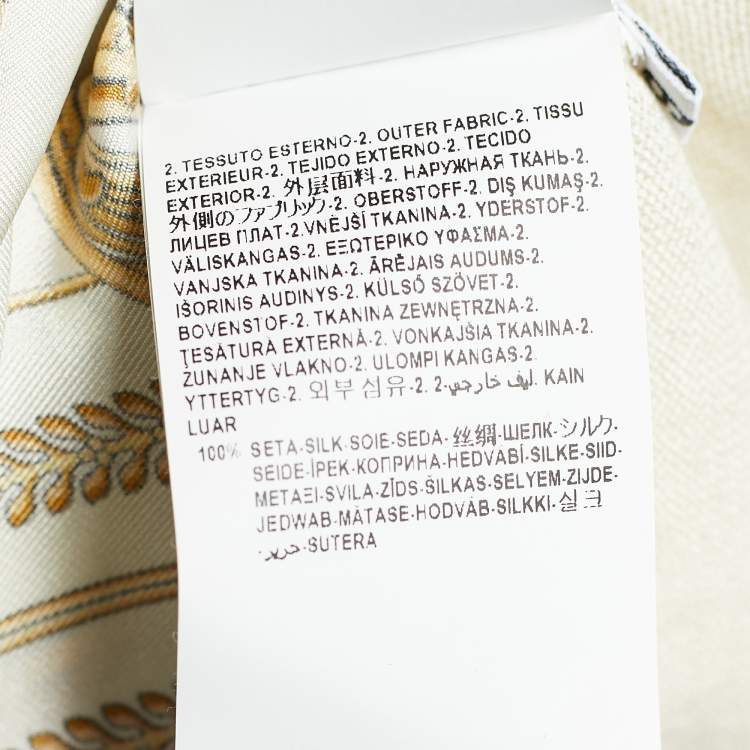 2. TESSUTO ESTERNO-2. OUTER FABRIC-2. TISSU
EXTERIEUR-2. TEJIDO EXTERNO-2. TECIDO
EXTERIOR-2. 外层面料-2. НАРУЖНАЯ ТКАНЬ-2.
外側のファブリック-2. OBERSTOFF-2. DIŞ KUMAŞ-2.
ЛИЦЕВ ПЛАТ-2.VNĚJŠÍ TKANINA-2. YDERSTOF-2.
VÄLISKANGAS-2. ΕΞΩΤΕΡΙΚΟ ΥΦΑΣΜΑ-2.
VANJSKA TKANINA-2. ĀRĒJAIS AUDUMS-2.
IŠORINIS AUDINYS-2. KÜLSŐ SZÖVET-2.
BOVENSTOF-2. TKANINA ZEWNĘTRZNA-2.
ŢESĂTURĂ EXTERNĂ-2. VONKAJŠIA TKANINA-2.
ZUNANJE VLAKNO-2. ULOMPI KANGAS-2.
YTTERTYG-2. 외부 섬유-2. 2-ليف خارجي. KAIN
LUAR
100% SETA-SILK-SOIE-SEDA-丝绸-ШЕЛК-シルク-
SEIDE-İPEK-КОПРИНА-HEDVÁBÍ-SILKE-SIID-
ΜΕΤΑΞΙ-SVILA-ZĪDS-ŠILKAS-SELYEM-ZIJDE-
JEDWAB-MĂTASE-HODVÁB-SILKKI-실크
-حرير-SUTERA